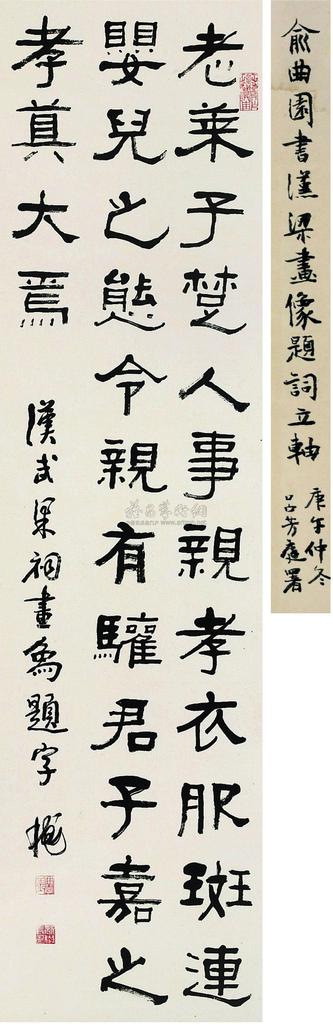 俞曲園書漢梁畫像題詞立軸
庚午仲冬
老萊子楚人事親孝衣服斑連
嬰兒之態令親有驩君子嘉之
孝莫大焉
漢武梁祠畫象題字 樾